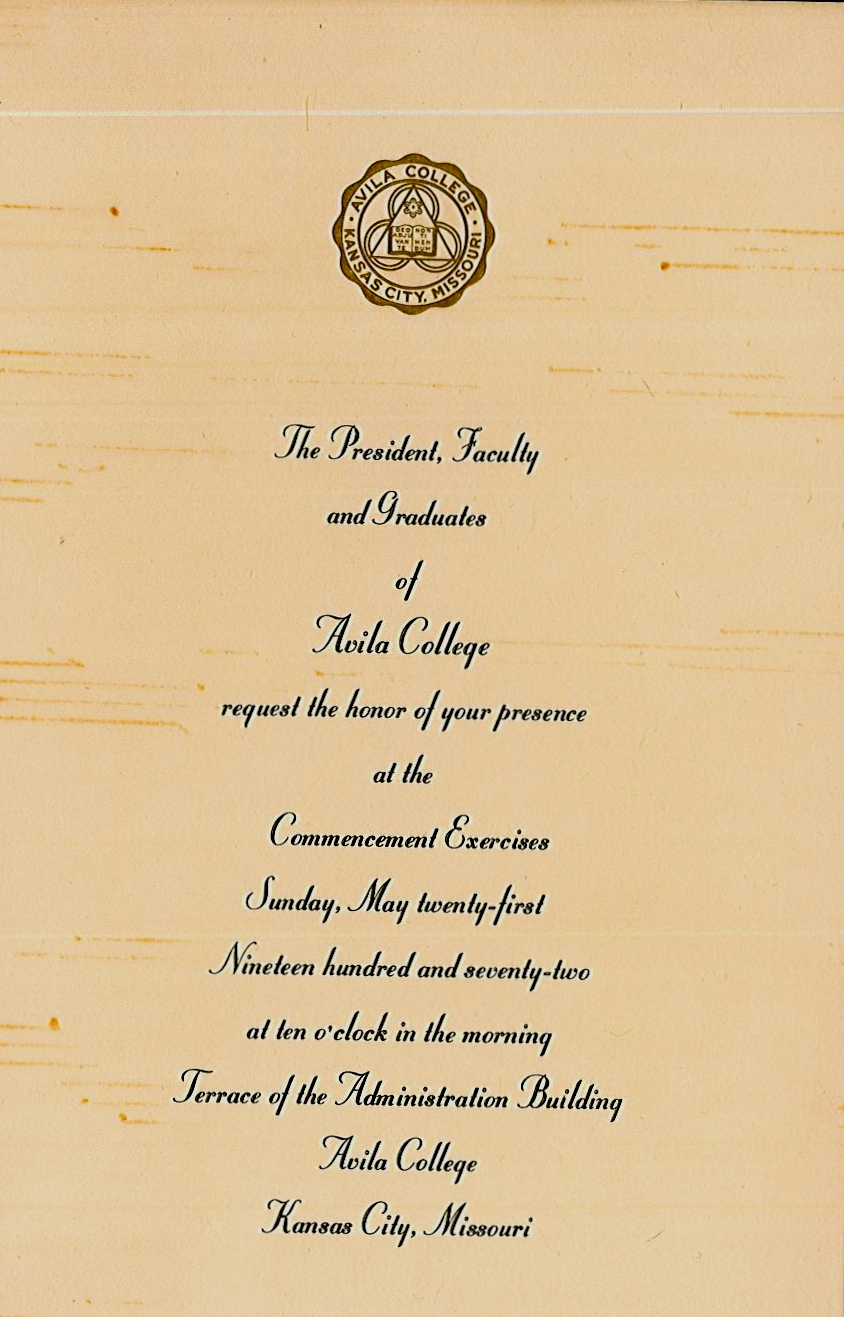 AVILA COLLEGE
KANSAS CITY, MISSOURI
DEO NON
ADJU TI
VAN MEN
TE DUM
The President, Faculty
and Graduates
of
Avila College
request the honor of your presence
at the
Commencement Exercises
Sunday, May twenty-first
Nineteen hundred and seventy-two
at ten o'clock in the morning
Terrace of the Administration Building
Avila College
Kansas City, Missouri